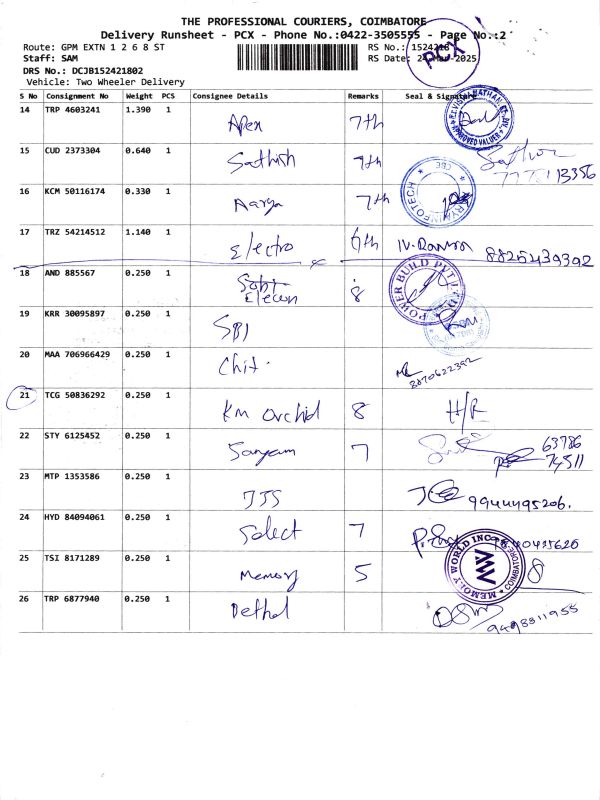 THE PROFESSIONAL COURIERS, COIMBATORE
Delivery Runsheet - PCX - Phone No.:0422-3505555 - Page No.:2
Route: GPM EXTN 1 2 6 8 ST
RS No.: 1524218
Staff: SAM
RS Date: 24-Mar-2025
PCX
DRS No.: DCJB152421802
Vehicle: Two Wheeler Delivery
S No Consignment No Weight PCS Consignee Details Remarks Seal & Signature
14 TRP 4603241 1.390 1 Apex 7th
APPROVED VALUER
15 CUD 2373304 0.640 1 Sathish 7th
16 KCM 50116174 0.330 1 Aarya 7th
INFOTECH CBE
17 TRZ 54214512 1.140 1 Electro 6th
8825439392
18 AND 885567 0.250 1 8
POWER BUILD PVT LTD
19 KRR 30095897 0.250 1 SBI
20 MAA 706966429 0.250 1 Chit.
8870622392
21 TCG 50836292 0.250 1 Km orchid 8 H/R
22 STY 6125452 0.250 1 Sanyam 7 63786
74511
23 MTP 1353586 0.250 1 JJS 9944495206.
24 HYD 84094061 0.250 1 Select 7
25 TSI 8171289 0.250 1 Memory 5 8
MEMOLY WORLD INC COIMBATORE
26 TRP 6877940 0.250 1 Dethol
9498811955